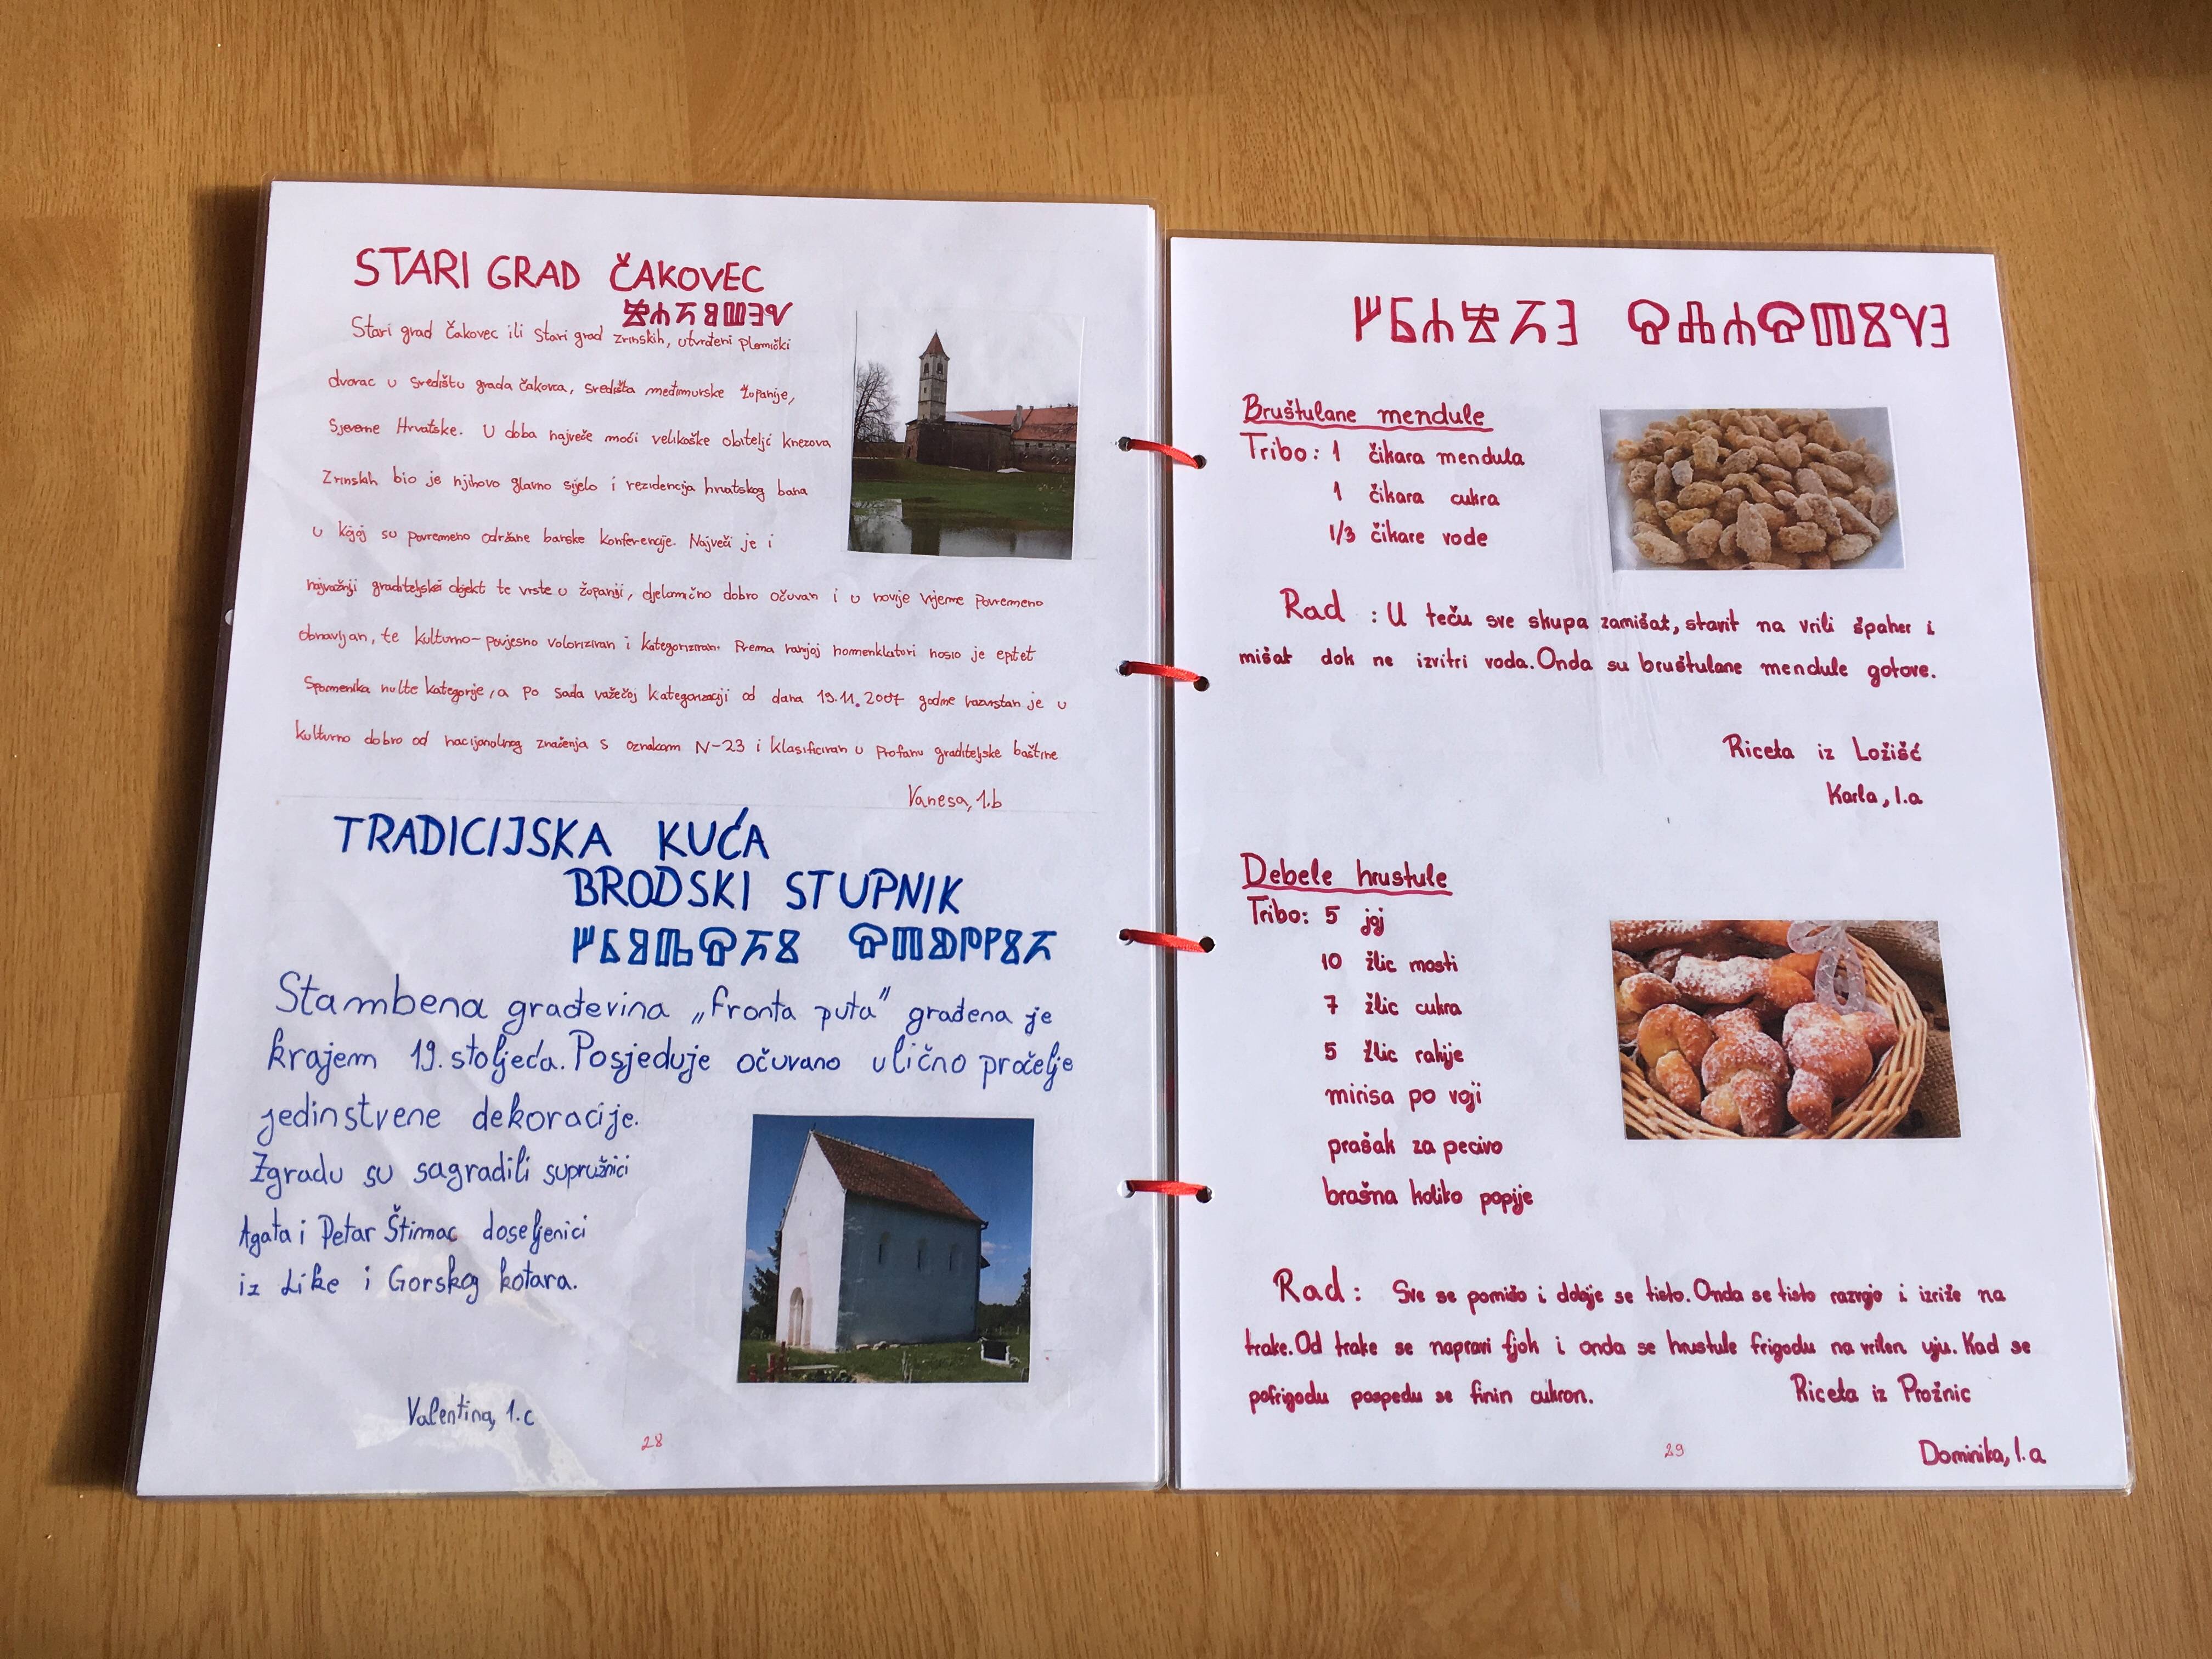 STARI GRAD ČAKOVEC
ⰝⰀⰍⰑⰂⰅⰜ
Stari grad Čakovec ili Stari grad Zrinskih, utvrđeni plemićki
dvorac u središtu grada Čakovca, središta međimurske županije,
Sjeverne Hrvatske. U doba najveće moći velikaške obitelji knezova
Zrinskih bio je njihovo glavno sijelo i rezidencija hrvatskog bana
u kojoj su povremeno održane banske konferencije. Najveći je i
najvažniji graditeljski objekt te vrste u županiji, djelomično dobro očuvan i u novije vrijeme povremeno
obnavljan, te kulturno-povjesno voloriziran i kategoriziran. Prema ranijoj nomenklaturi nosio je epitet
Spomenika nulte kategorije, a po sada važećoj kategorizaciji od dana 19.11.2007 godine razvrstan je u
kulturno dobro od nacijonalnog značenja s oznakom N-23 i klasificiran u profanu graditeljske baštine
Vanesa, 1.b
TRADICIJSKA KUĆA
BRODSKI STUPNIK
ⰁⰓⰑⰄⰔⰍⰋ ⰔⰕⰖⰒⰐⰋⰍ
Stambena građevina „fronta puta" građena je
krajem 19. stoljeća. Posjeduje očuvano ulično pročelje
jedinstvene dekoracije.
Zgradu su sagradili supružnici
Agata i Petar Štimac doseljenici
iz Like i Gorskog kotara.
Valentina, 1.c
28
ⰁⰓⰀⰝⰍⰅ ⰔⰎⰀⰔⰕⰋⰜⰅ
Bruštulane mendule
Tribo: 1 čikara mendula
1 čikara cukra
1/3 čikare vode
Rad : U teću sve skupa zamišat, stavit na vrili špaher i
mišat dok ne izvitri voda. Onda su bruštulane mendule gotove.
Riceta iz Ložišć
Karla, 1.a
Debele hrustule
Tribo: 5 joj
10 žlic masti
7 žlic cukra
5 žlic rakije
mirisa po voji
prašak za pecivo
brašna koliko popije
Rad: Sve se pomišo i dobije se tisto. Onda se tisto razvajo i izriže na
trake. Od trake se napravi fjok i onda se hrustule frigodu na vrilen uju. Kad se
pofrigodu pospedu se finin cukron.
Riceta iz Pražnic
29
Dominika, 1.a